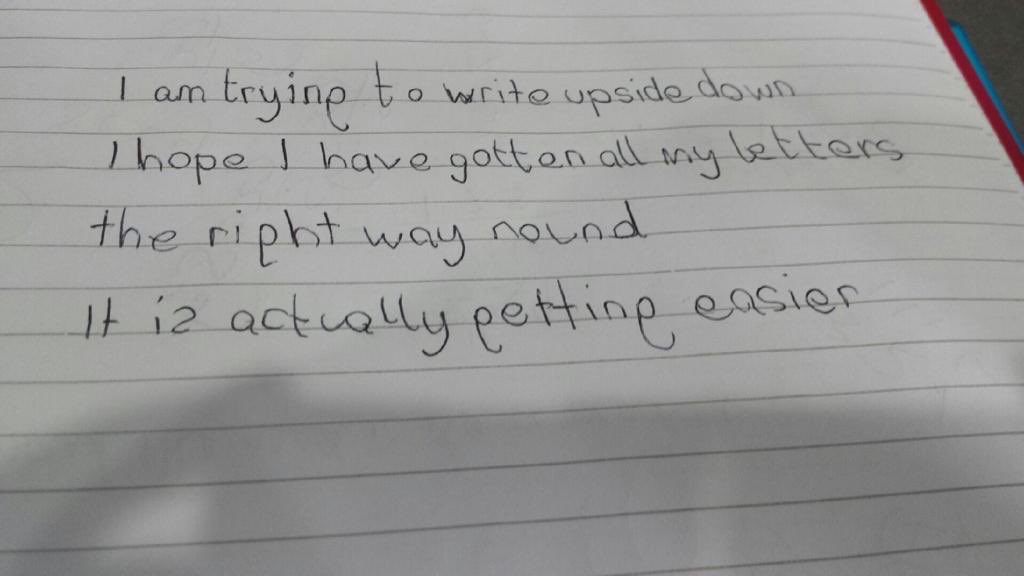 I am trying to write upside down
I hope I have gotten all my letters
the right way round
It is actually getting easier